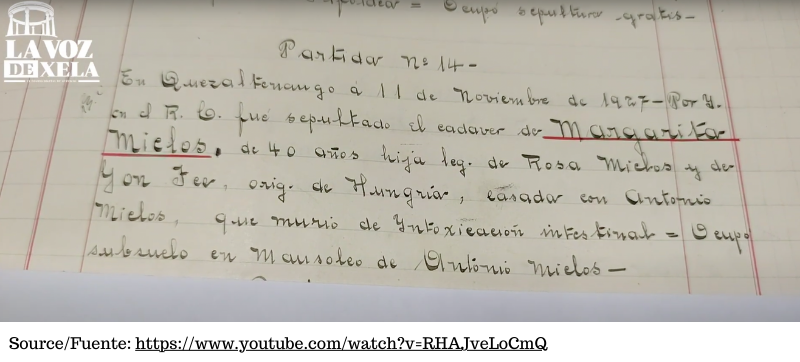 LA VOZ
DE XELA
= Ocupó sepultura gratis-
Partida nº 14-
En Quezaltenango a 11 de Noviembre de 1927- Por Y.
en el R. C. fué sepultado el cadaver de Margarita
Mielos, de 40 años hija leg. de Rosa Mielos y de
Yon Fer, orig. de Hungría, casada con Antonio
Mielos, que murio de Yntoxicación intestinal = Ocupó
subsuelo en Mausoleo de António Mielos-
Source/Fuente: https://www.youtube.com/watch?v=RHAJveLoCmQ